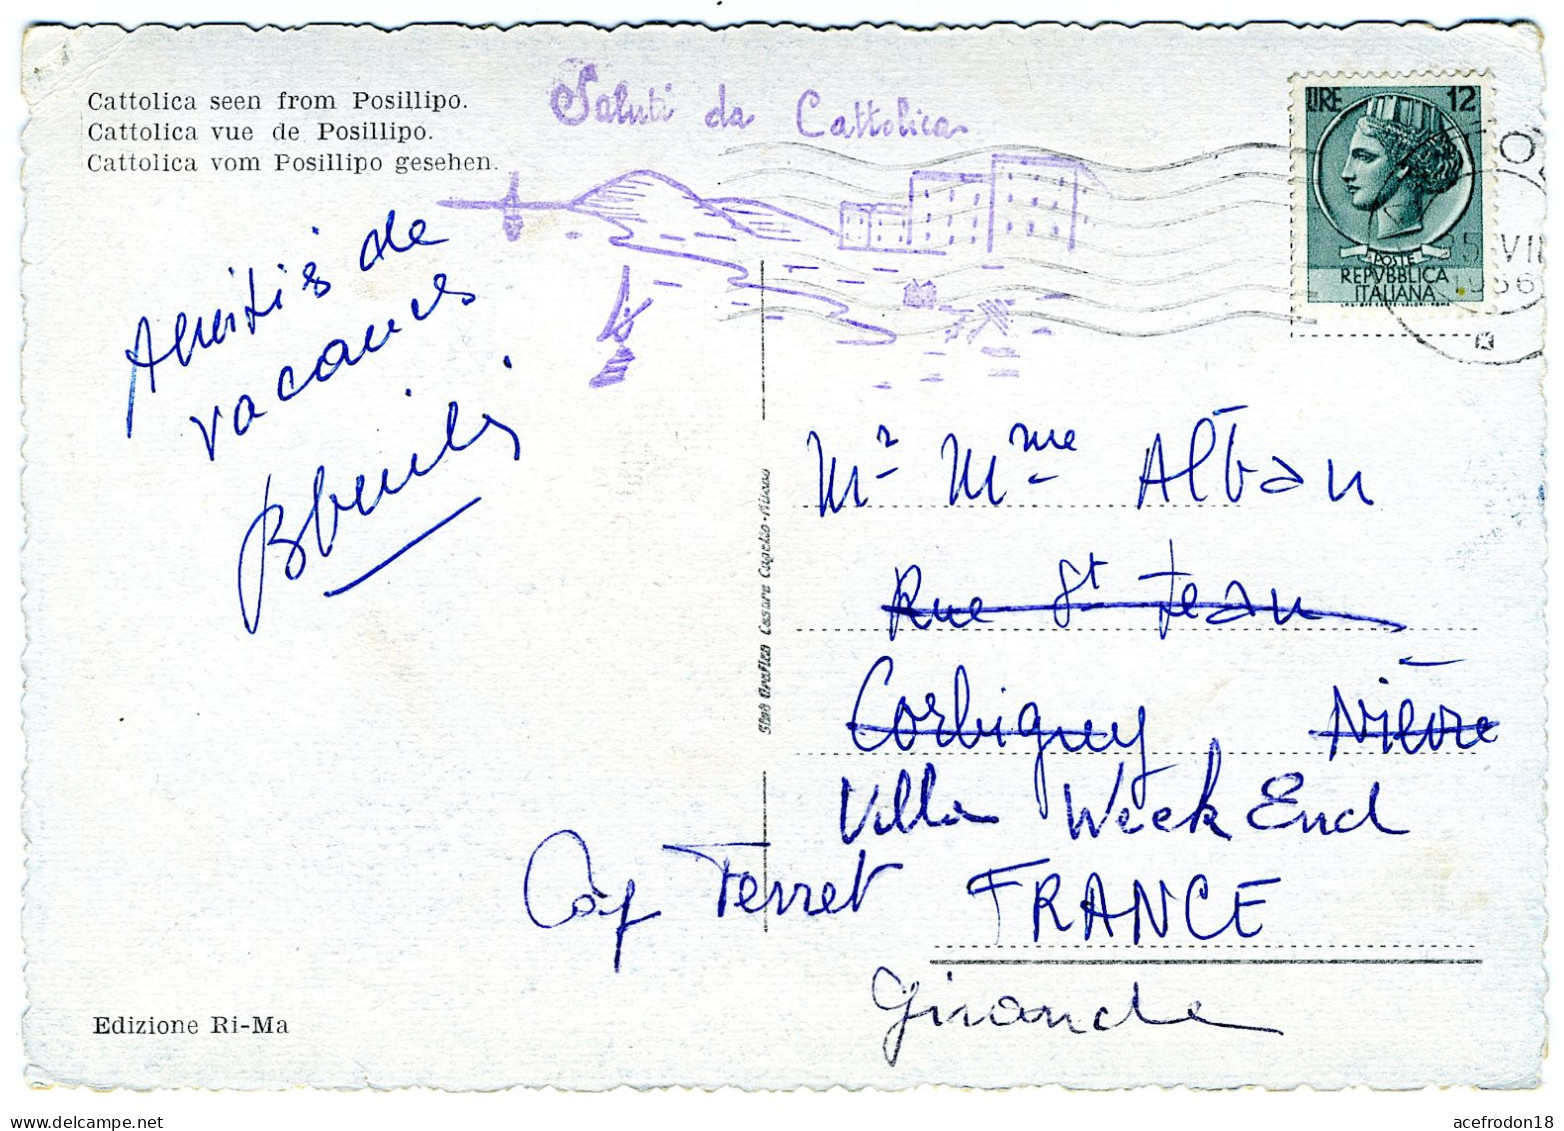 Cattolica seen from Posillipo.
Cattolica vue de Posillipo.
Cattolica vom Posillipo gesehen.
Saluti da Cattolica
LIRE 12
POSTE
REPVBBLICA
ITALIANA
VII
1956
Amitiés de
vacances
Mr Mme Alban
Rue St Jean
Corbigny Nièvre
Villa Week End
Cap Ferret FRANCE
Gironde
Stab Grafico Cesare Capello-Milano
Edizione Ri-Ma
acefrodon18